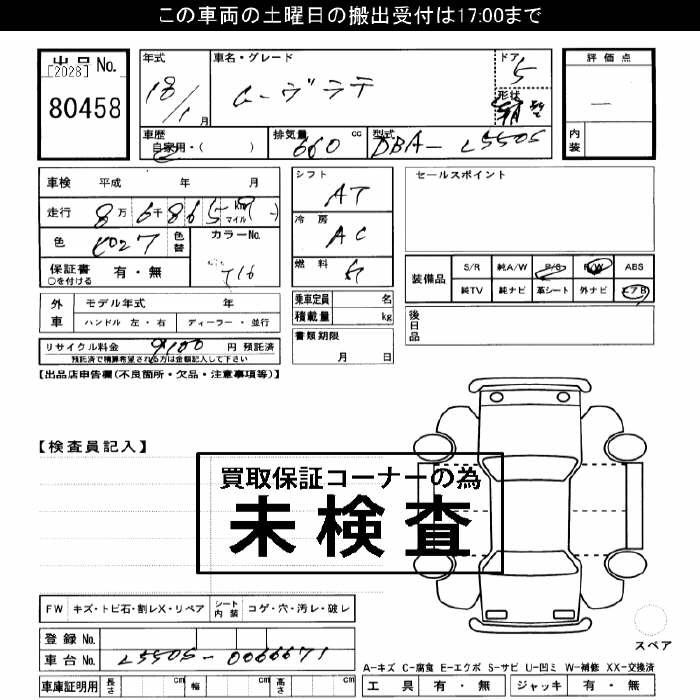 この車両の土曜日の搬出受付は17:00まで
出品 No.
[2028]
80458
年式 18/1 月
車名・グレード ムーヴラテ
ドア 5
形状
評価点 —
内装
車歴 自家用・( )
排気量 660 cc
型式 DBA- L550S
車検 平成 年 月
走行 8万6千865 km マイル
色
色替
カラーNo. T16
保証書 有・無
○を付ける
シフト AT
冷房 AC
燃料
セールスポイント
装備品 S/R 純A/W P/S P/W ABS
純TV 純ナビ 革シート 外ナビ エアB
外車 モデル年式 年
ハンドル 左・右 ディーラー・並行
乗車定員 名
積載量 kg
後日品
リサイクル料金 9100 円 預託済
預託済で精算希望される方は金額記入して下さい
書類期限 月 日
【出品店申告欄(不良箇所・欠品・注意事項等)】
【検査員記入】
買取保証コーナーの為
未検査
FW キズ・トビ石・割レX・リペア シート内装 コゲ・穴・汚レ・破レ
登録 No.
車台 No. L550S-0066671
スペア
A-キズ C-腐食 E-エクボ S-サビ U-凹ミ W-補修 XX-交換済
車庫証明用 長さ cm 幅 cm 高さ cm
工具 有・無 ジャッキ 有・無